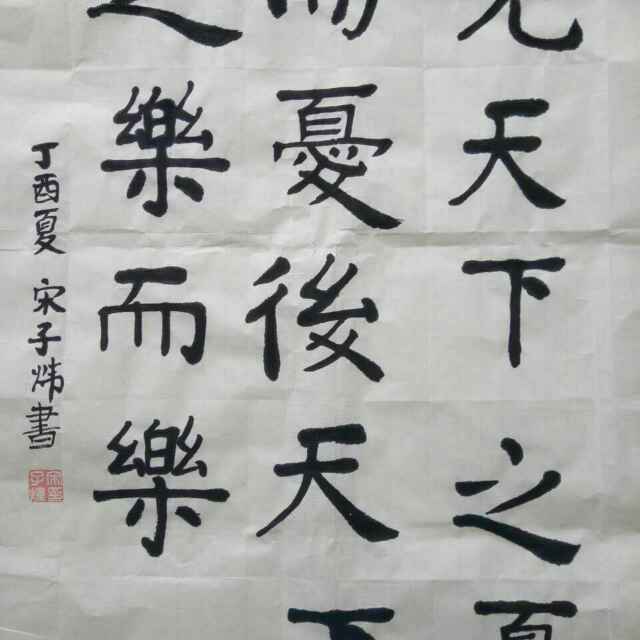 先天下之憂
而憂後天下
之樂而樂
丁酉夏 宋子炜書